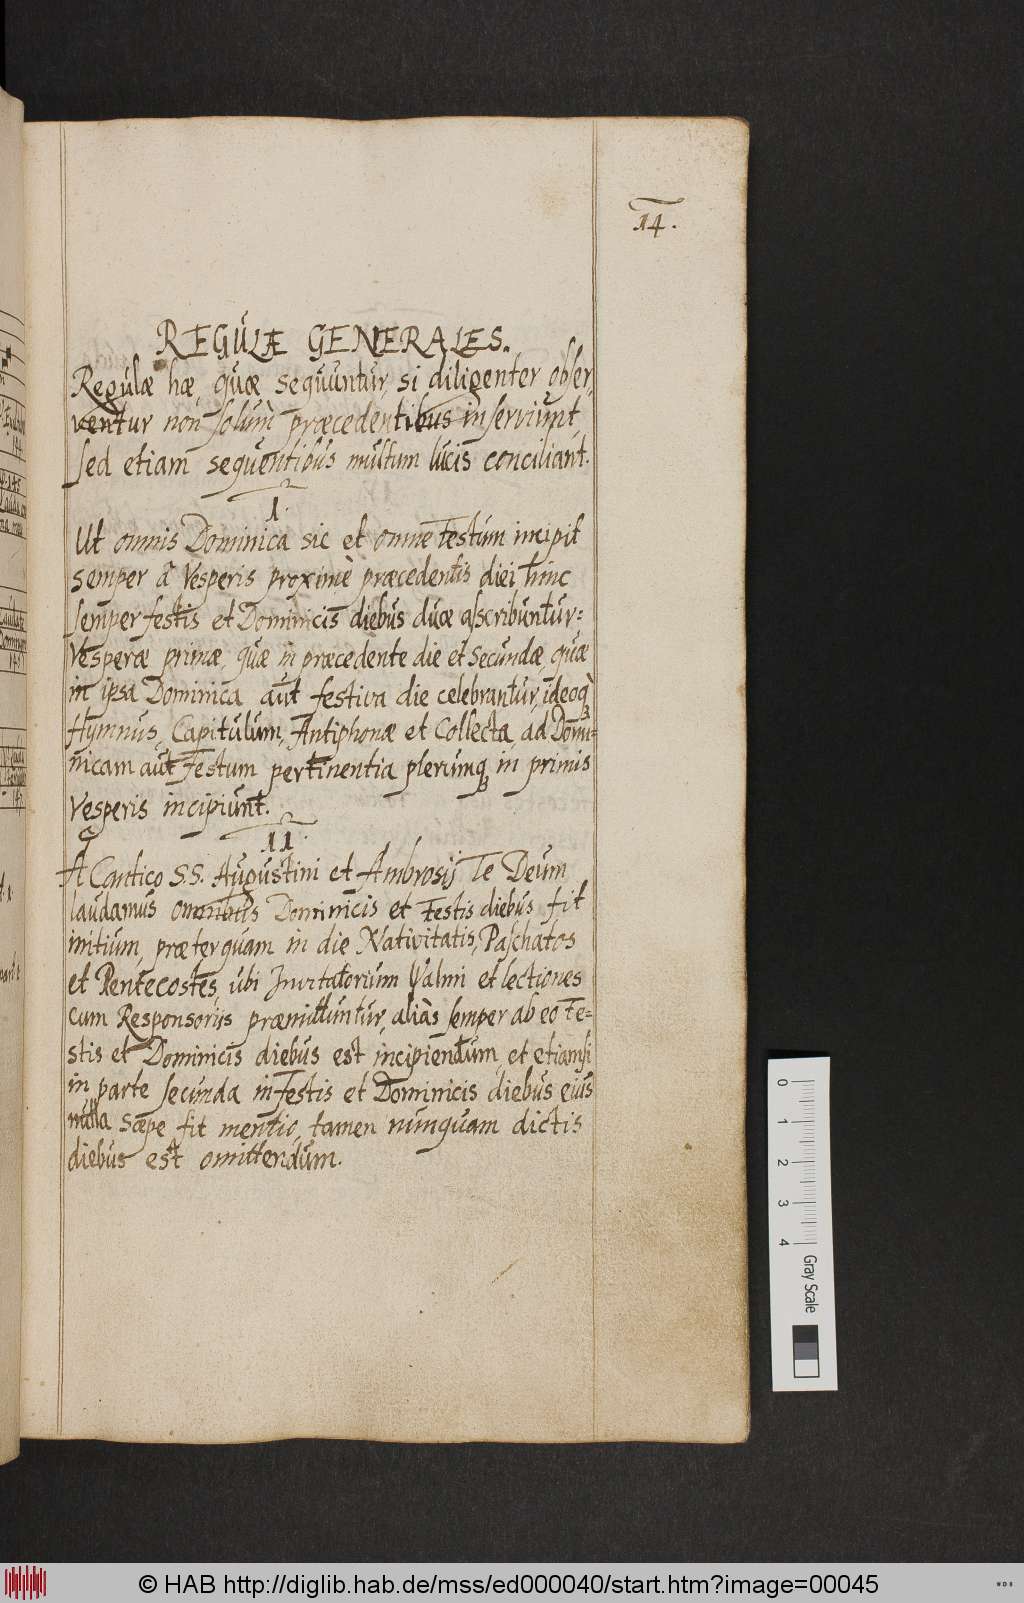 14.
REGULÆ GENERALES.
Regulæ hæ quæ sequuntur, si diligenter obser,
ventur non solum præcedentibus inserviunt,
sed etiam sequentibus multum lucis conciliant.
1.
Ut omnis Dominica sic et omne Festum incipit
semper à Vesperis proximè præcedentis diei hinc
semper festis et Dominicis diebus duæ ascribuntur=
Vesperæ primæ, quæ in præcedente die et secundæ, quæ
in ipsa Dominica aut festiva die celebrantur, ideoqꝫ
Hymnus, Capitulum, Antiphonæ et Collecta, ad Domi=
nicam aut Festum pertinentia plerumqꝫ in primis
Vesperis incipiunt.
11.
A Cantico S.S. Augustini et Ambrosij Te Deum
laudamus omnibus Dominicis et Festis diebus fit
initium, præterquam in die Nativitatis, Paschatos
et Pentecostes, ubi Invitatorium Psalmi et lectiones
cum Responsorijs præmittuntur, aliàs semper ab eo Fe=
stis et Dominicis diebus est incipiendum, et etiamsi
in parte secunda in Festis et Dominicis diebus eius
nulla sæpe fit mentio, tamen nunquam dictis
diebus est omittendum.
0 1 2 3 4
Gray Scale
© HAB http://diglib.hab.de/mss/ed000040/start.htm?image=00045